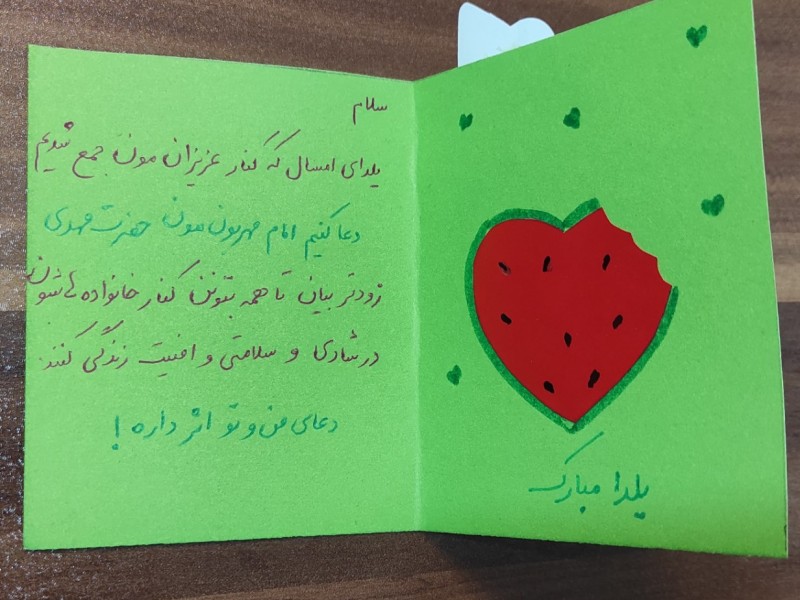 سلام
یلدای امسال که کنار عزیزان مون جمع شدیم
دعا کنیم امام مهربون مون حضرت مهدی
زودتر بیان تا همه بتونن کنار خانواده هاشون
در شادی و سلامتی و امنیت زندگی کنند.
دعای من و تو اثر داره!
یلدا مبارک